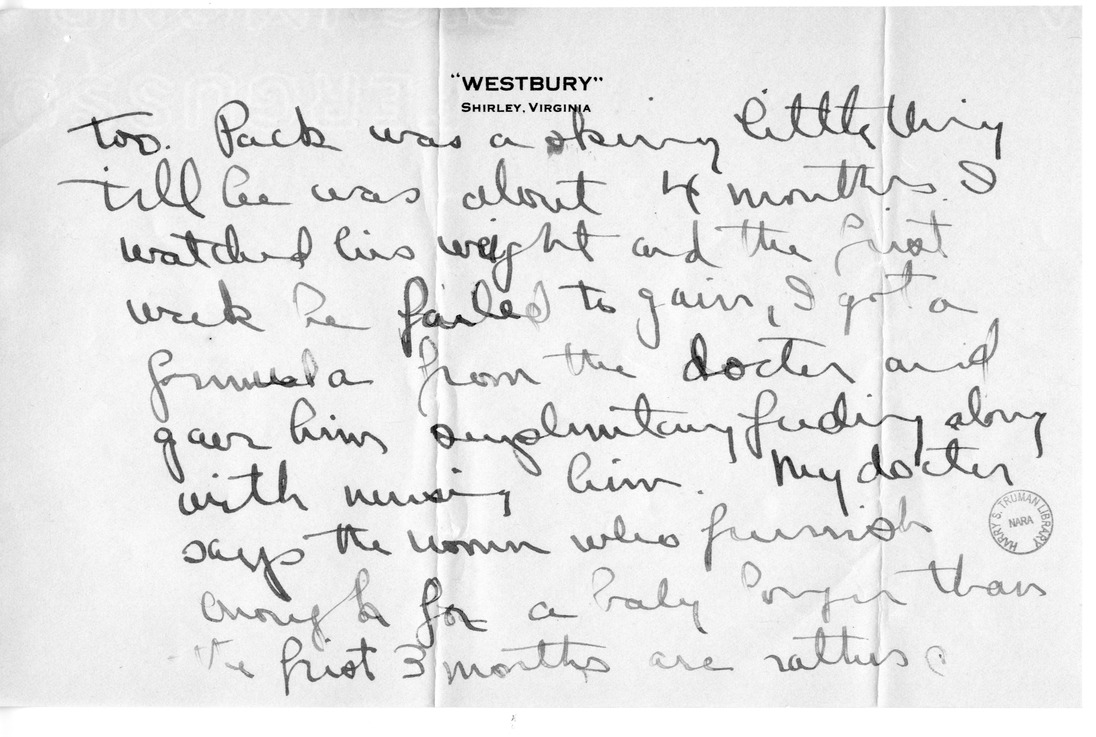 "WESTBURY"
SHIRLEY, VIRGINIA
too. Pack was a skinny little thing
till he was about 4 months. I
watched his weight and the first
week he failed to gain, I got a
formula from the docter and
gave him suplmitary feeding along
with nursing him. My docter
says the women who furnish
enough for a baby longer than
the first 3 months are rather
HARRY S. TRUMAN LIBRARY
NARA